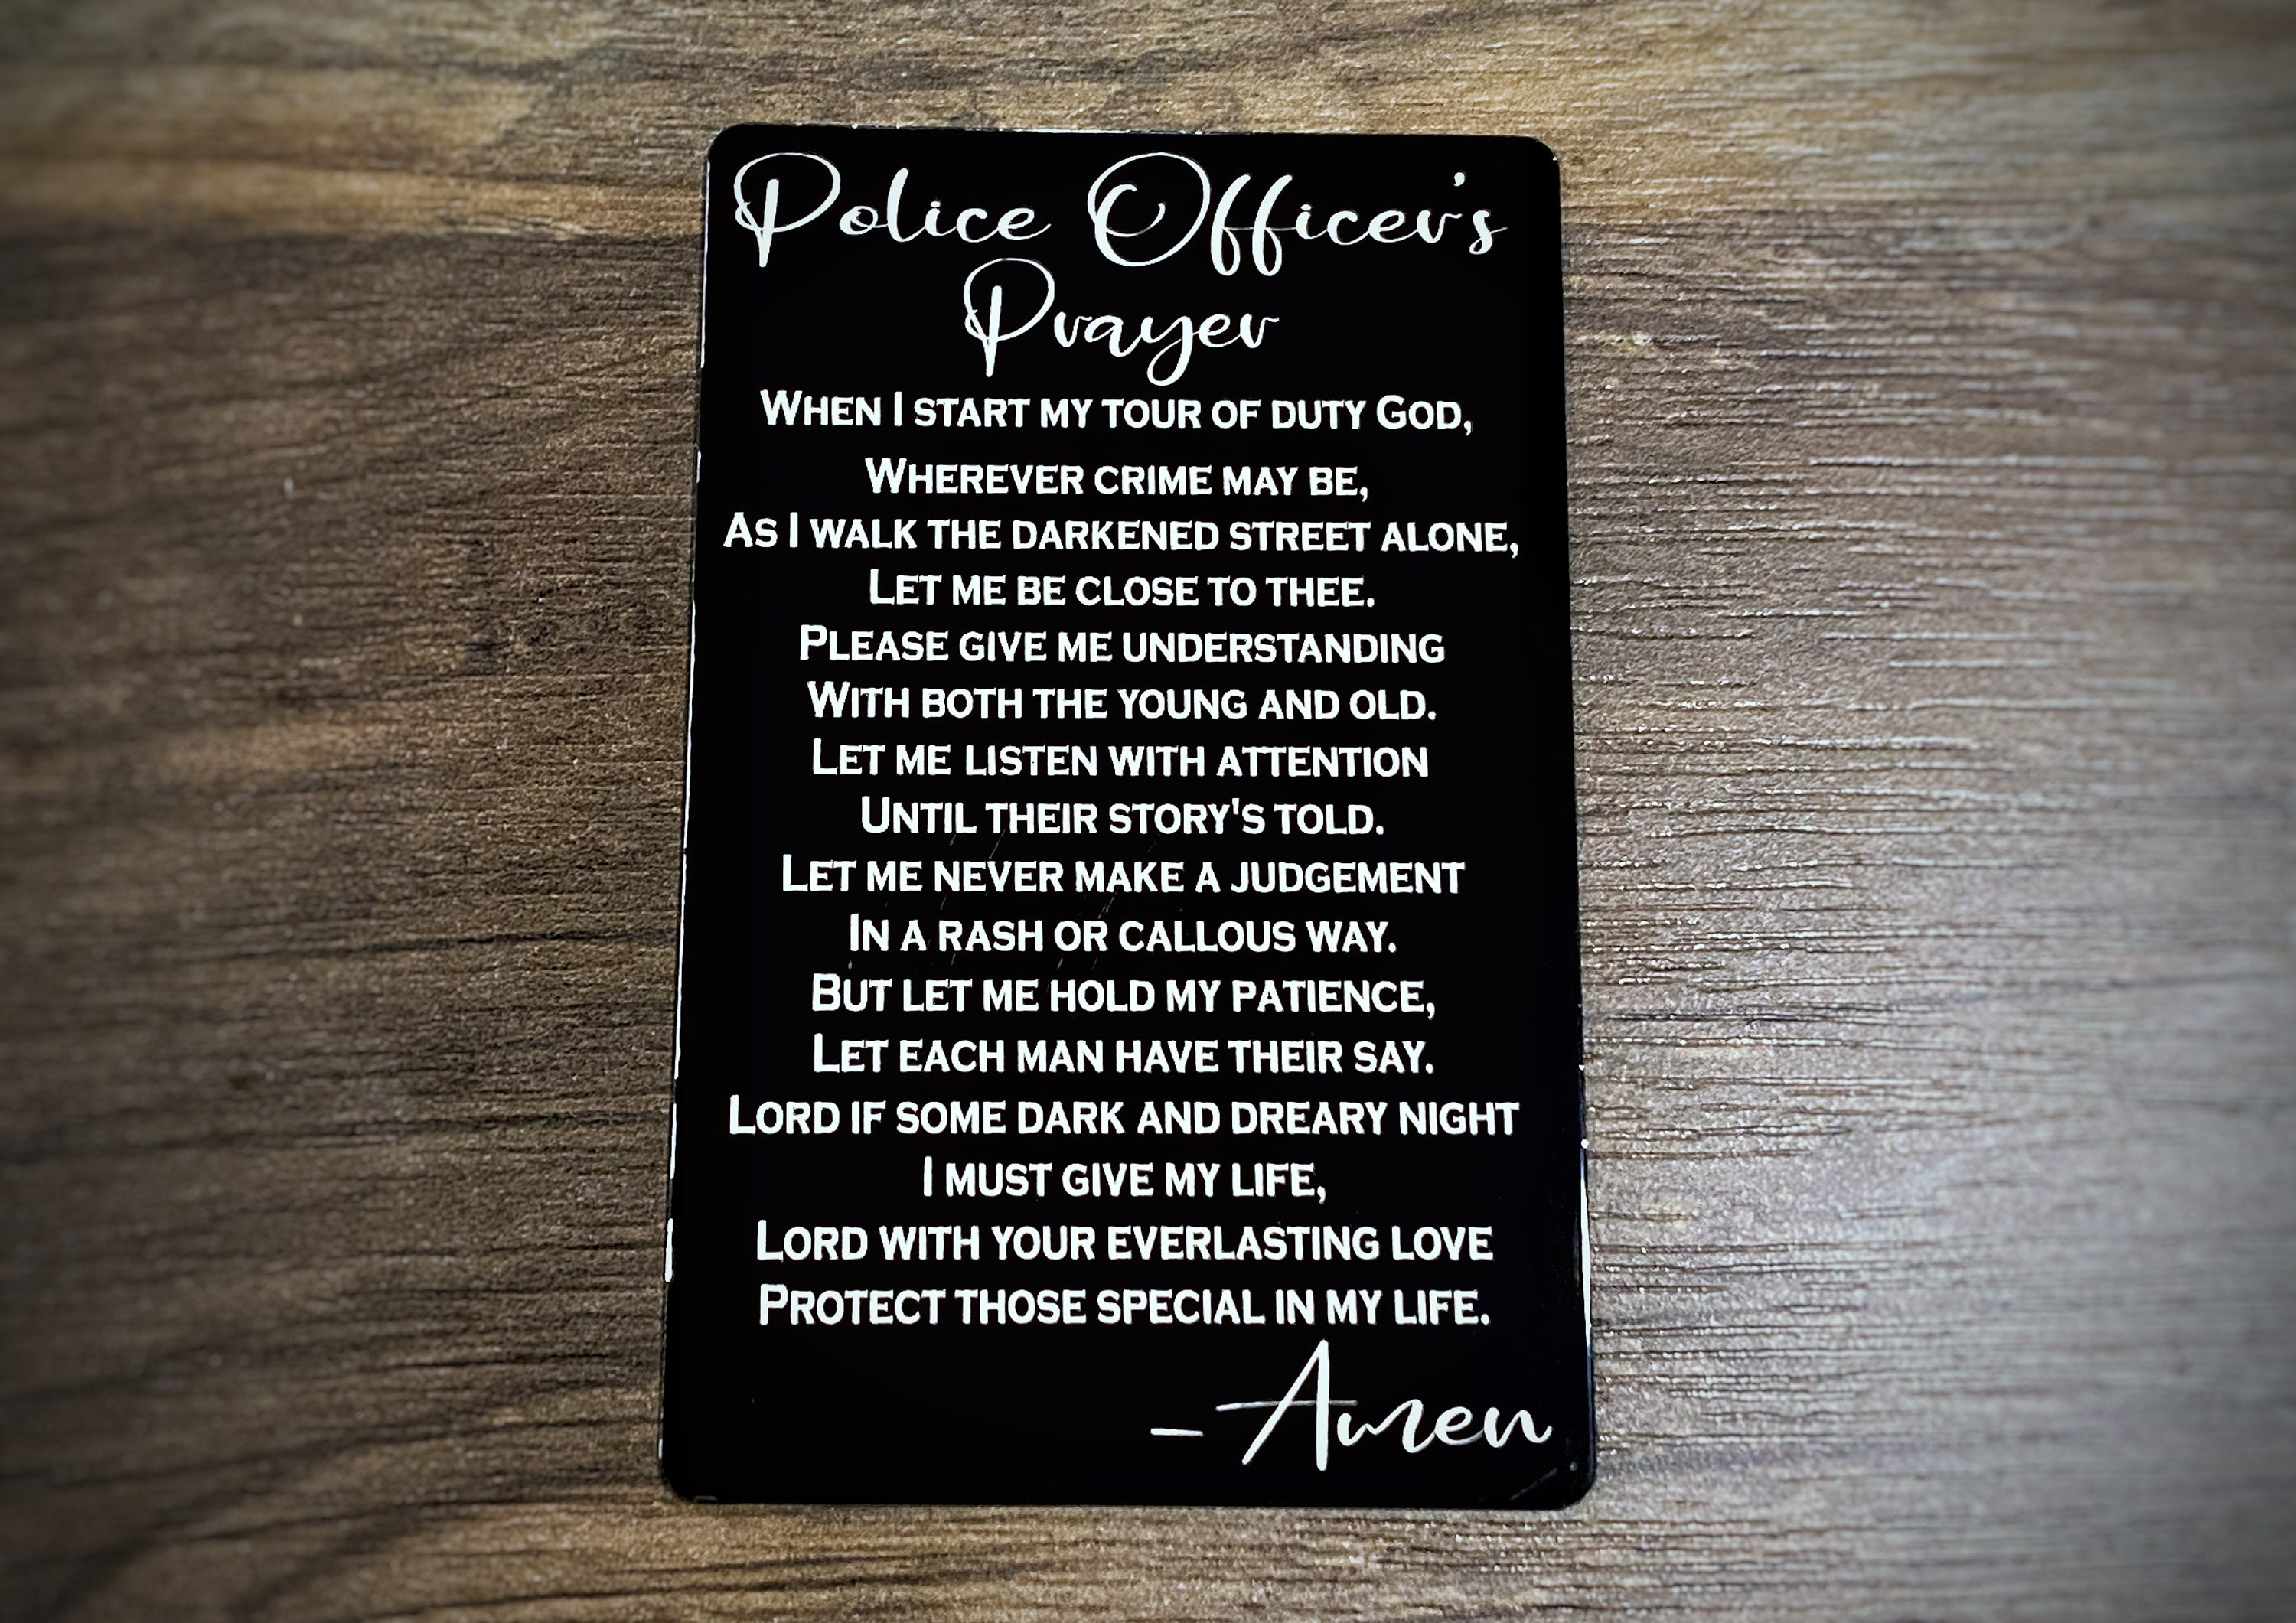 Police Officer's
Prayer
When I start my tour of duty God,
Wherever crime may be,
As I walk the darkened street alone,
Let me be close to thee.
Please give me understanding
With both the young and old.
Let me listen with attention
Until their story's told.
Let me never make a judgement
In a rash or callous way.
But let me hold my patience,
Let each man have their say.
Lord if some dark and dreary night
I must give my life,
Lord with your everlasting love
Protect those special in my life.
– Amen